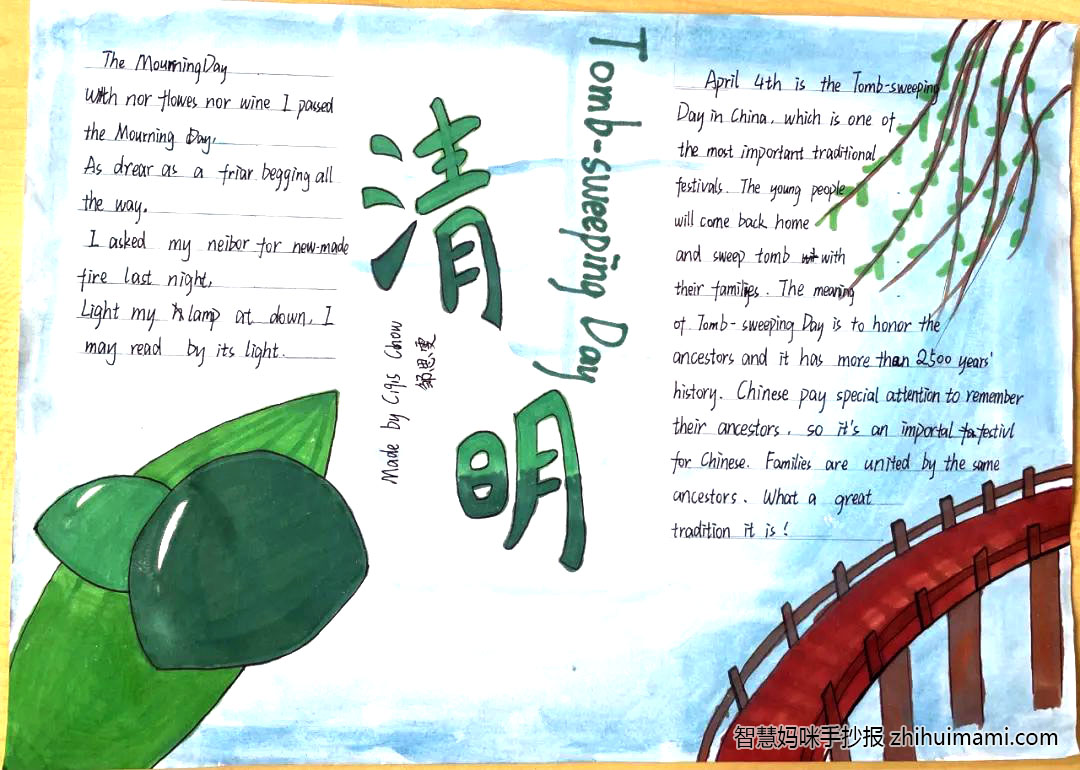 The Mourning Day
With nor flowes nor wine I passed
the Mourning Day,
As drear as a friar begging all
the way.
I asked my neibor for new-made
fire last night,
Light my lamp at down, I
may read by its light.
清明
Tomb-sweeping Day
Made by Chow
邹思雯
April 4th is the Tomb-sweeping
Day in China, which is one of
the most important traditional
festivals. The young people
will come back home
and sweep tomb with
their families. The meaning
of Tomb-sweeping Day is to honor the
ancestors and it has more than 2500 years'
history. Chinese pay special attention to remember
their ancestors, so it's an importal festivl
for Chinese. Families are united by the same
ancestors. What a great
tradition it is!
智慧妈咪手抄报 zhihuimami.com